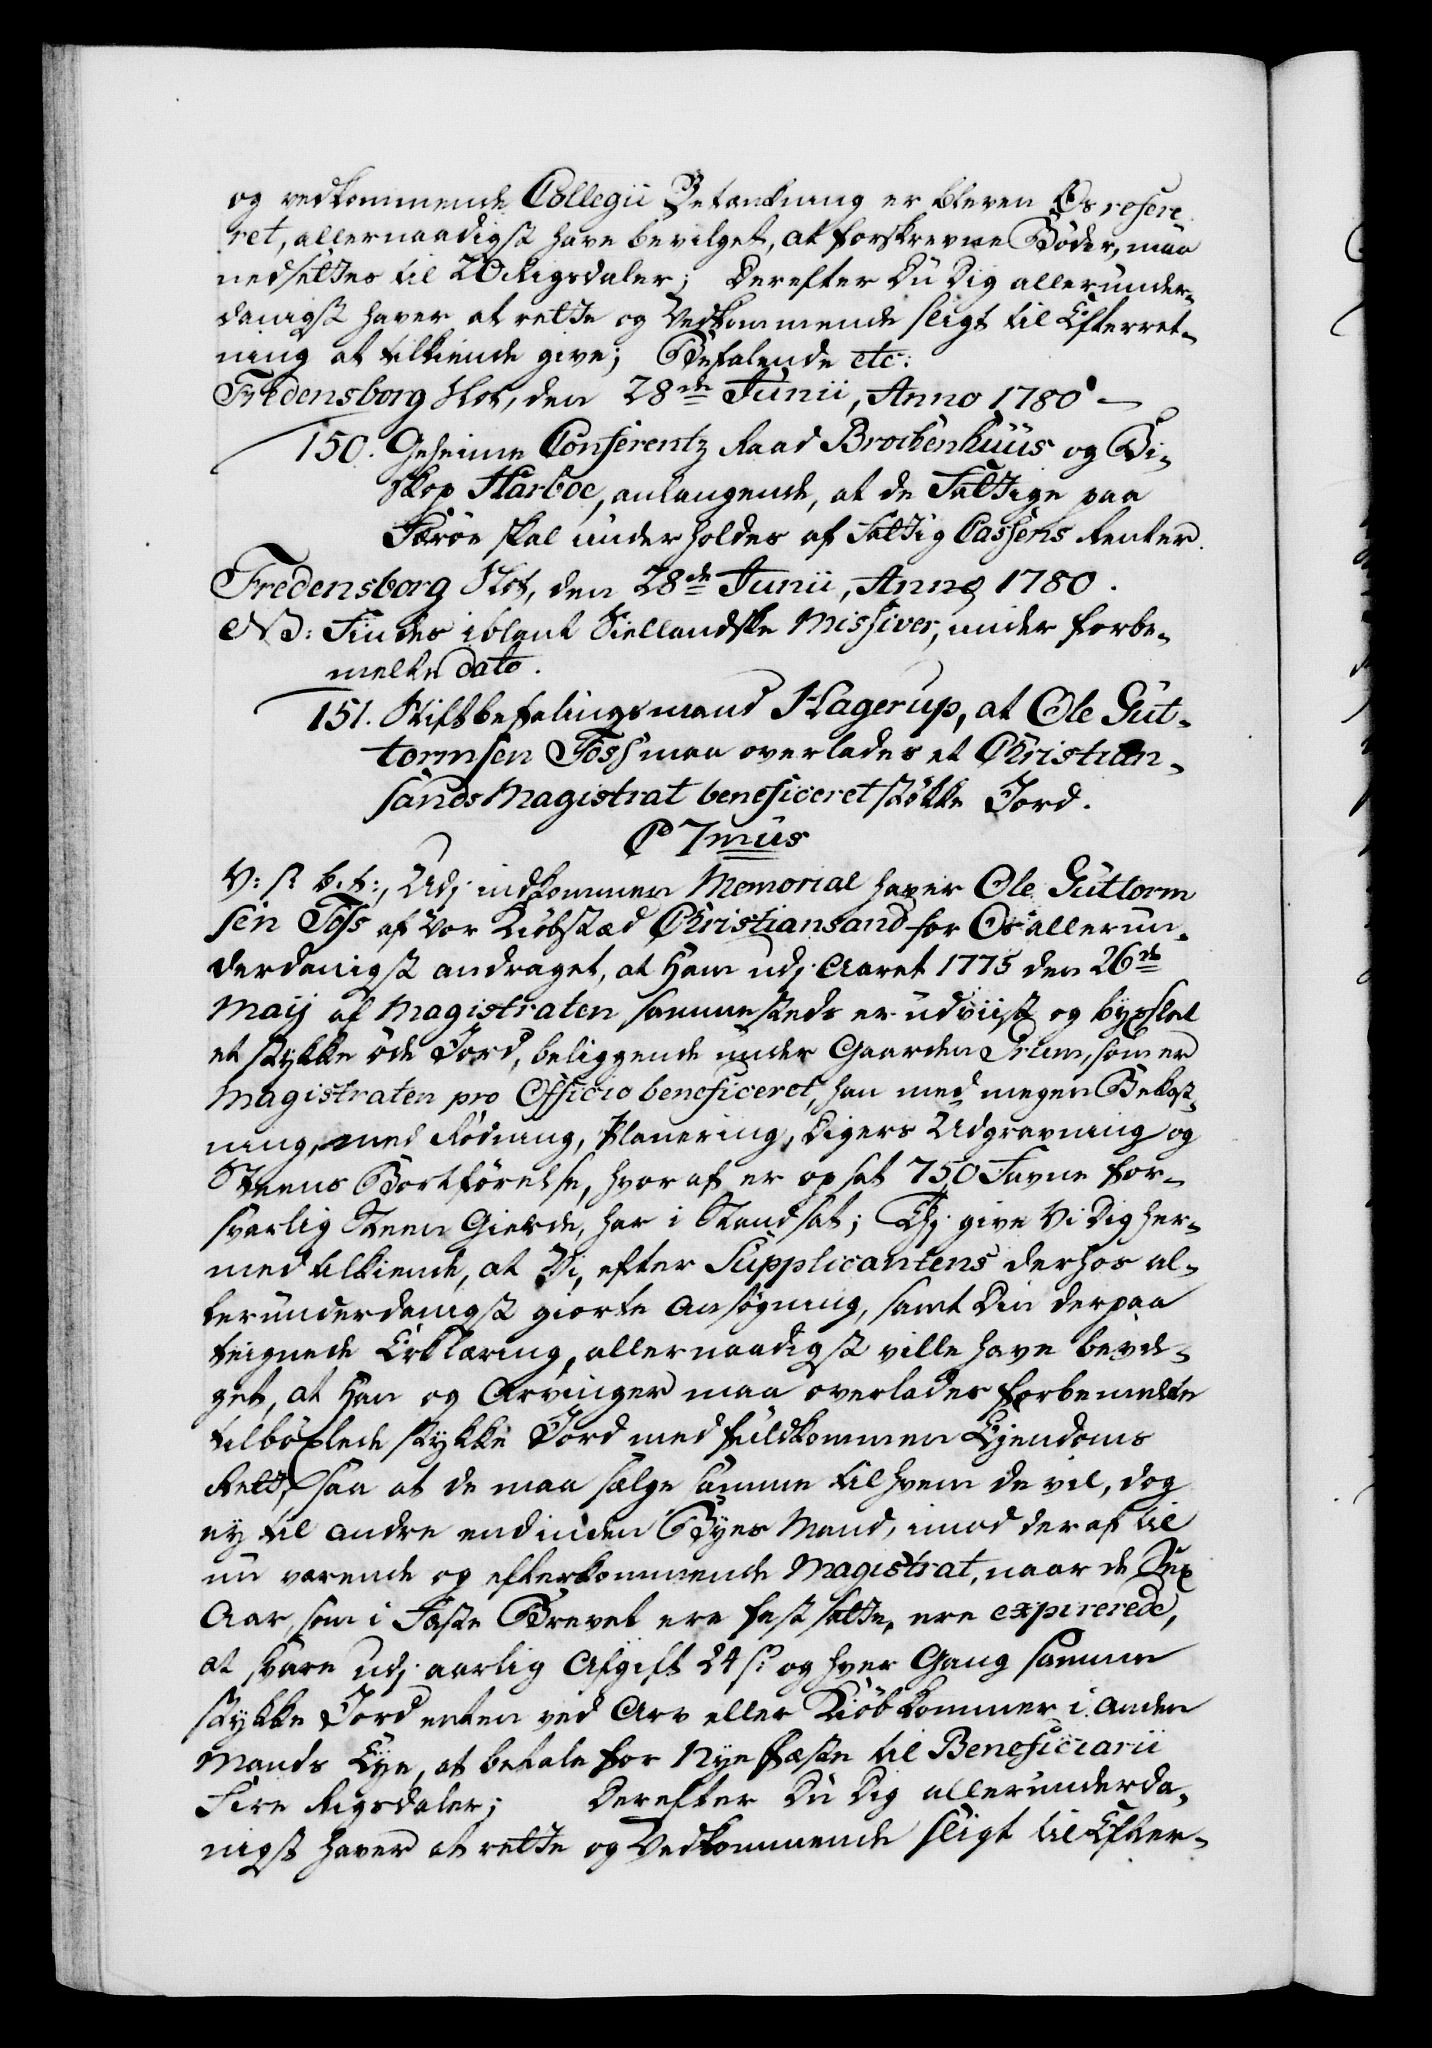 og vedkommende Collegii Betænkning er bleven Os refere-
ret, allernaadigst have bevilget, at forskrevne Bøder, maa
nedsættes til 20 Rigsdaler; Derefter Du Dig allerunder-
danigst haver at rette og Vedkommende sligt til Efterret-
ning at tilkiende give; Befalende etc:
Fredensborg Slot, den 28de Junii, Anno 1780 —
150. Geheime Conferentz Raad Brockenhuus og Bi-
skop Harboe, anlangende, at de Fattige paa
Færöe skal underholdes af Fattig Cassens Renter.
Fredensborg Slot, den 28de Junii, Anno 1780.
NB: Findes iblant Siellandske Missiver, under forbe-
melte dato.
151. Stiftbefalingsmand Hagerup, at Ole Gut-
tormsen Foss maa overlades et Christian-
sands Magistrat beneficeret støkke Jord.
C 7mus
V: S: G: T:, Udj indkommen Memorial haver Ole Guttorm
sen Foss af Vor Kiöbstæd Christiansand for Os allerun-
derdanigst andraget, at Ham udj Aaret 1775 den 26de
Maij af Magistraten sammesteds er udviist og byxlet
et stykke öde Jord, beliggende under Gaarden Grim, som er
Magistraten pro Officio beneficeret, han med megen Bekost-
ning, med Rödning, Planering, Digers Udgravning og
Steens Bortförelse, hvoraf er opsat 750 Favne for-
svarlig Steen Gierde, har i Stand sat; Thj give Vi Dig her-
med tilkiende, at Vi, efter Supplicantens derhos al-
lerunderdanigst giorte Ansögning, samt Din derpaa
teignede Erklæring, allernaadigst ville have bevil-
get, at Han og Arvinger maa overlades forbemelte
tilböxlede stykke Jord med fuldkommen Eyendoms
Rett, saa at de maa sælge samme til hvem de vil, dog
ey til andre end inden Byes Mand, imod deraf til
nu værende og efterkommende Magistrat, naar de Sex
Aar, som i Fæste Brevet ere fastsatte, ere expirerede,
at svare udj aarlig Afgift 24 s: og hver Gang samme
stykke Jord enten ved Arv eller Kiöb kommer i anden
Mands Eye, at betale for Nye Fæste til Beneficiarii
Fire Rigsdaler; Derefter Du Dig allerunderda-
nigst haver at rette og Vedkommende sligt til Efter-